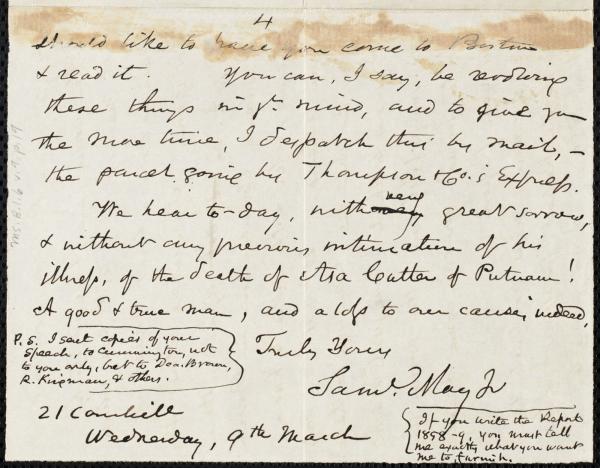 4
should like to have you come to Boston
& read it. You can, I say, be revolving
these things in yr. mind, and to give you
the more time, I despatch this by mail, –
the parcel going by Thompson & Co.'s Express.
We hear to-day, with very great sorrow,
& without any previous intimation of his
illness, of the death of Asa Cutter of Putnam!
A good & true man, and a loss to our cause, indeed,
Truly Yours
Saml. May Jr
P.S. I sent copies of your
Speech, to Cummington, not
to you only, but to Dea. Brown,
R. Kingman, & others.
21 Cornhill
Wednesday, 9th March
If you write the Report
1858-9, you must tell
me exactly what you want
me to furnish.
Ms. B.1.6 v.7 p.19